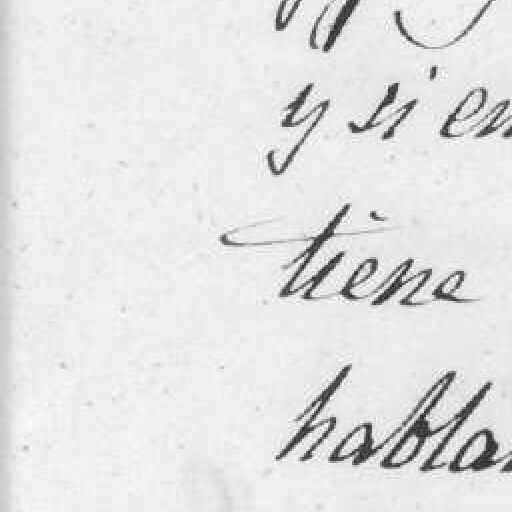 y si en
tiene
hablar